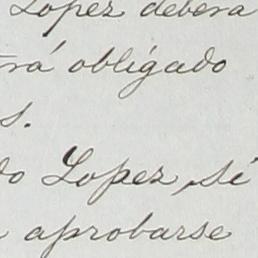 Lopez debera
rá obligado
s.
do Lopez, sé
aprobarse